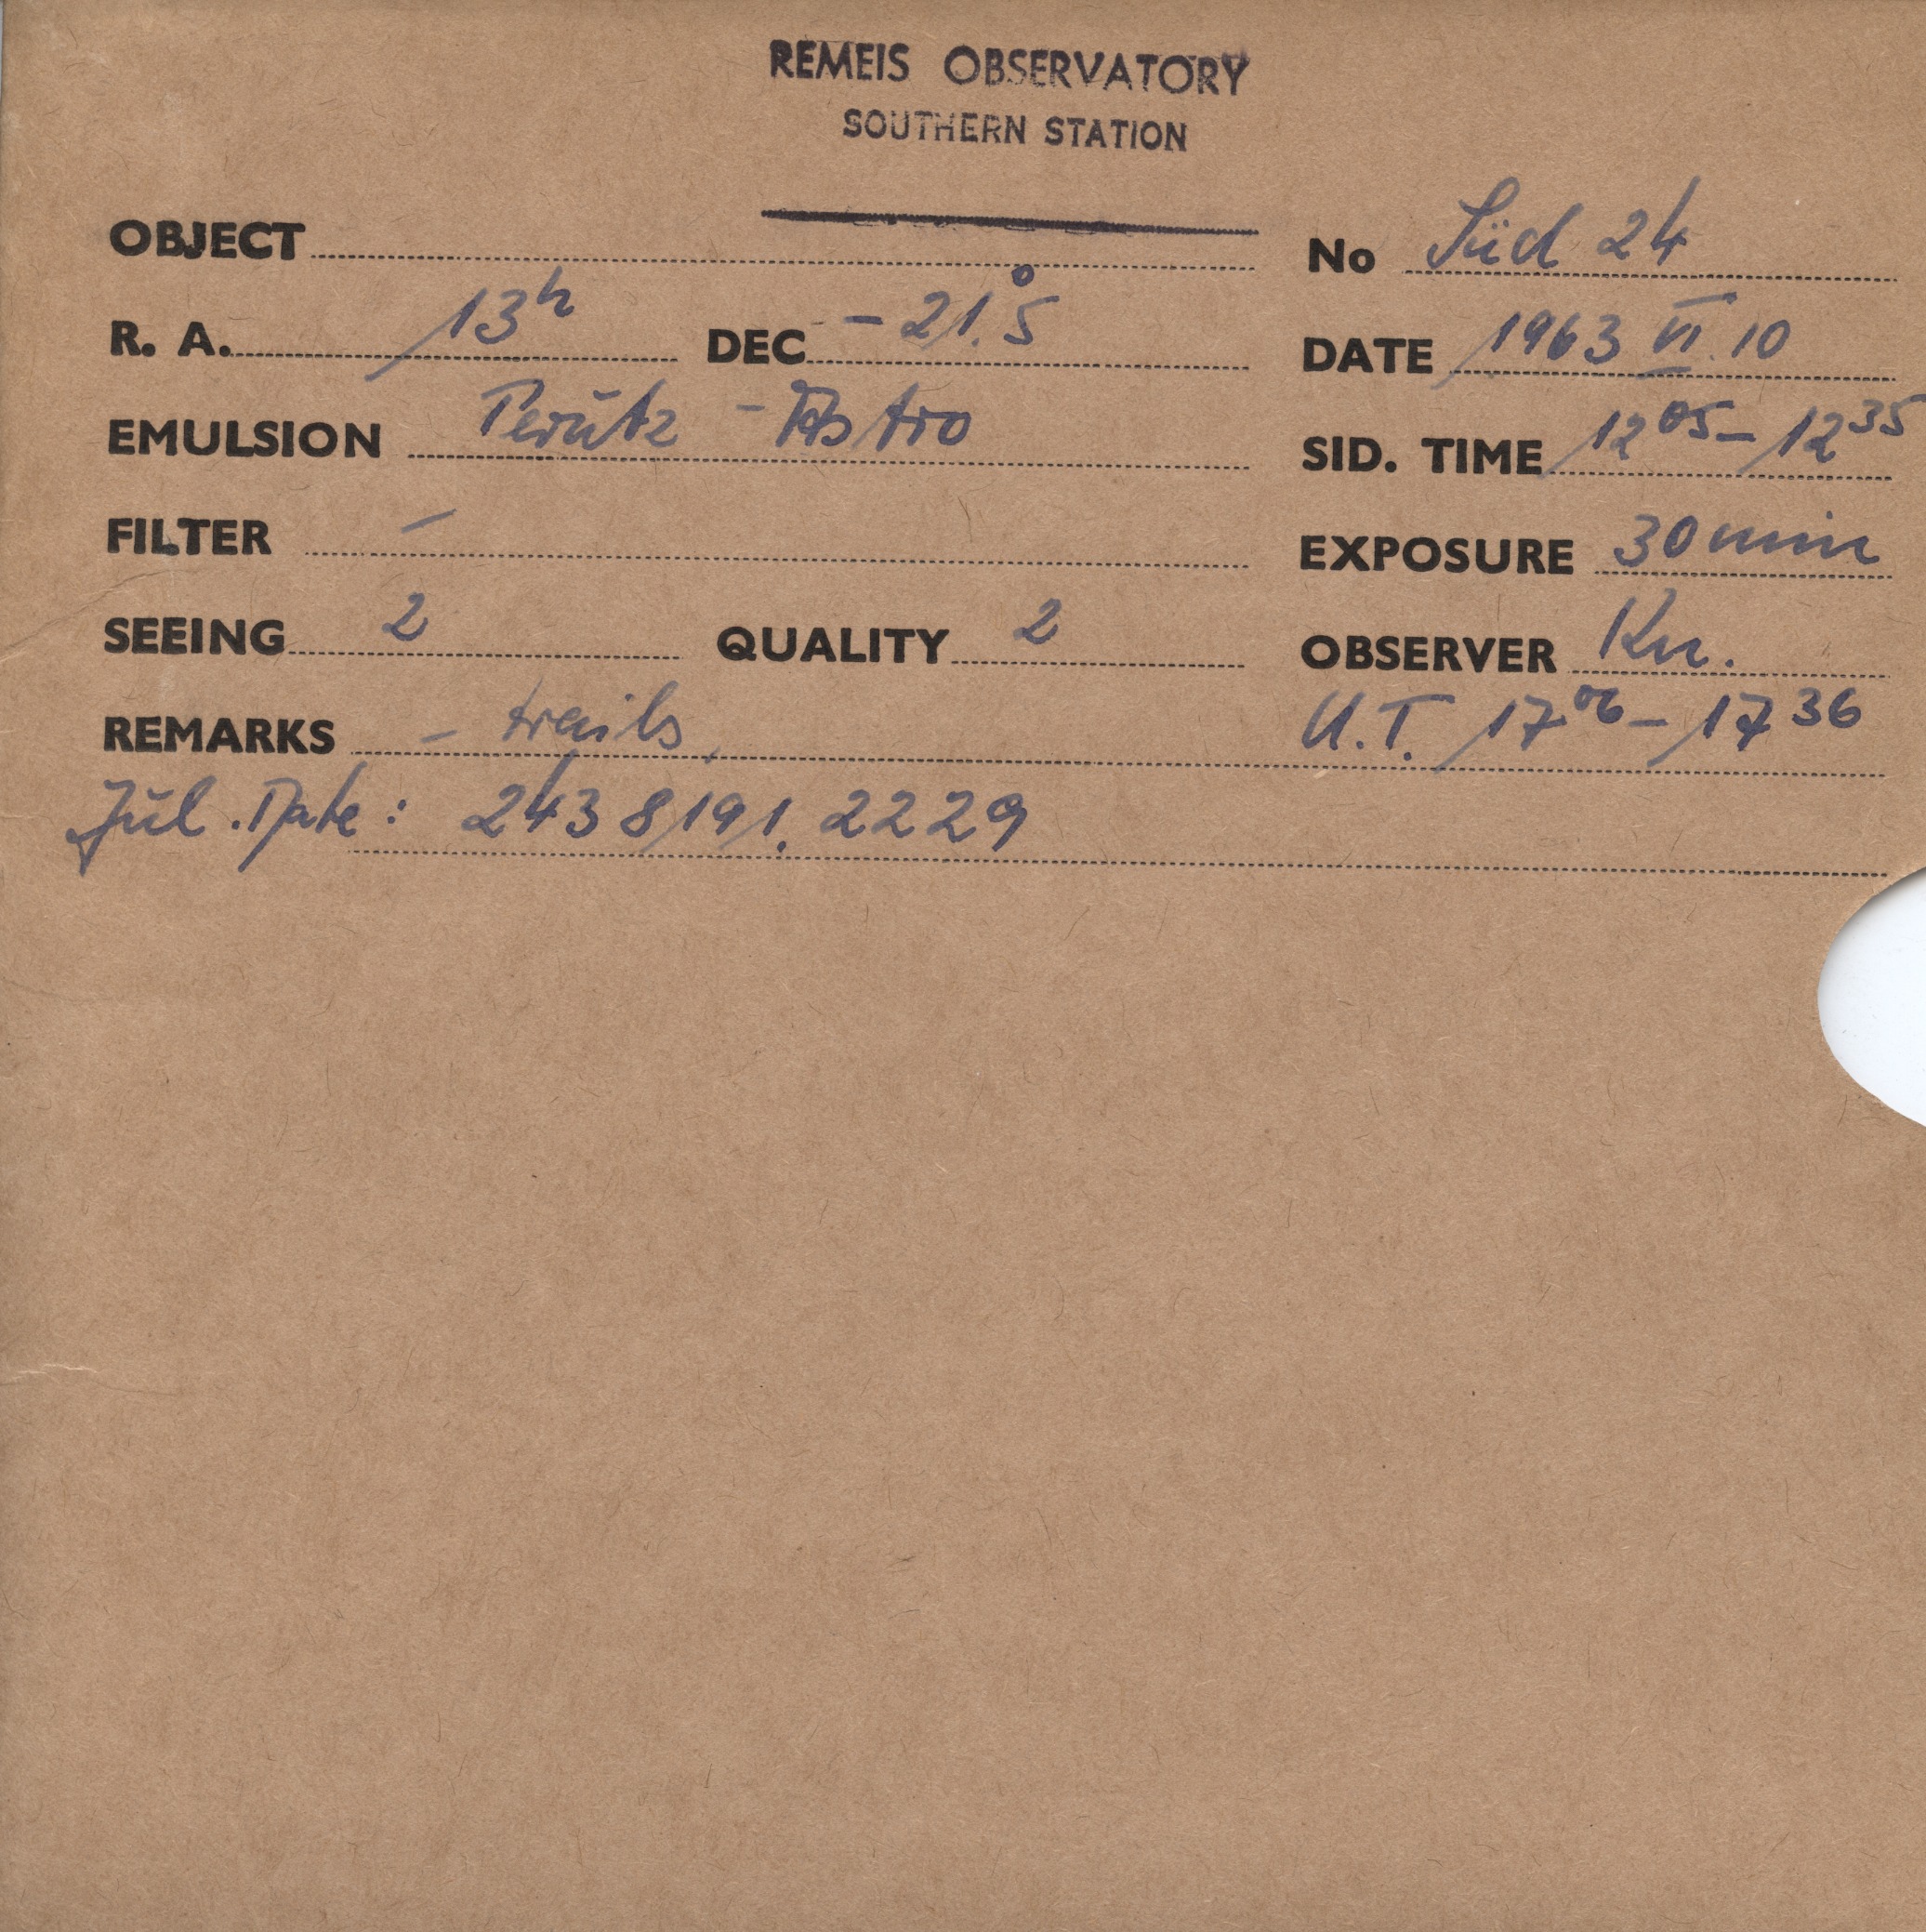 REMEIS OBSERVATORY
SOUTHERN STATION
OBJECT No Süd 24
R. A. 13h DEC -21.°5 DATE 1963 VI.10
EMULSION Perutz - Astro SID. TIME 12 05 - 12 35
FILTER - EXPOSURE 30 min
SEEING 2 QUALITY 2 OBSERVER Kn.
REMARKS - trails, U.T. 17 06 - 17 36
Jul. Date: 2438191.2229